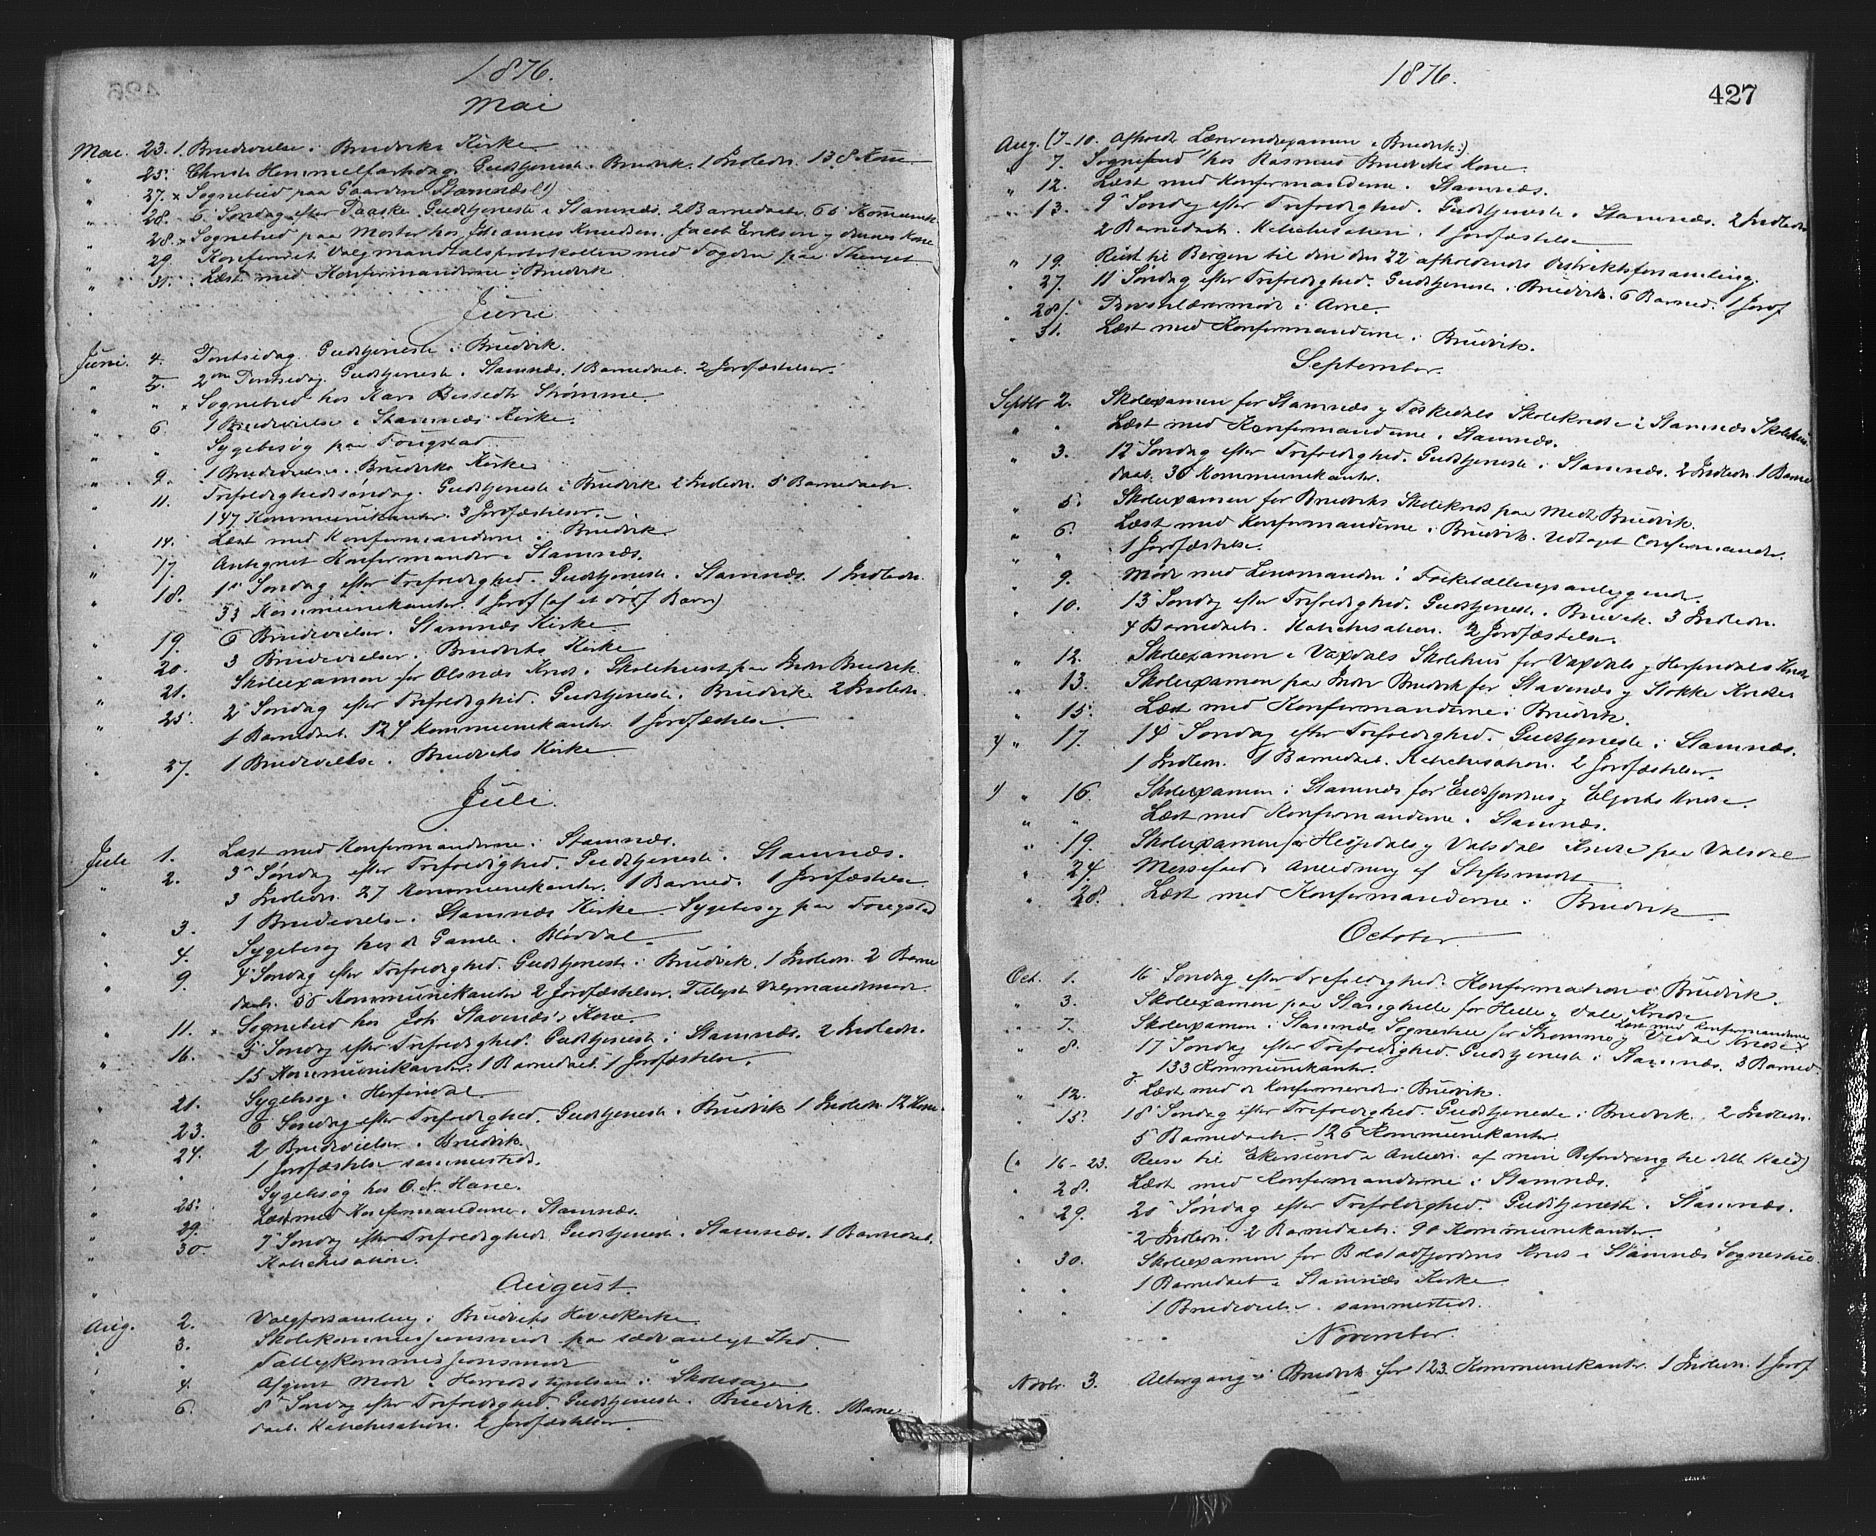 1876.
Mai
Mai. 23. 1 Brudevielse i Bruviks Kirke
" 25. Christi Himmelfartsdag. Gudstjeneste i Bruvik. 1 Indledn. 138 Kom
" 27. x Sognebud paa Gaarden Stamnæs (1)
" 28. 6 Søndag efter Paaske. Gudstjeneste i Stamnæs. 2 Barnedaab. 66 Kommunik
" 28. x Sognebud paa Moster hos Johannes Knudsen, Jacob Erikson og dennes Kone
" 29. Konfereret Valgmandtalsprotokollen med Fogden paa Thinget
" 31. Læst med Konfirmanderne i Bruvik
Juni
Juni. 4. Pintsedag. Gudstjeneste i Bruvik.
" 5. 2den Pintsedag Gudstjeneste i Stamnæs. 1 Barnedaab. 2 Jordfæstelser.
" " x Sognebud hos Kari Strømme
" 6. 1 Brudevielse i Stamnæs Kirke.
" Sygebesøg paa Fougstad.
" 9. 1 Brudevielse i Bruviks Kirke
" 11. Trefoldighedssøndag. Gudstjeneste i Bruvik 2 Indledn. 5 Barnedaab.
147 Kommunikanter. 3 Jordfæstelser.
" 14. Læst med Konfirmanderne i Bruvik
" 17. Antegnet Konfirmander i Stamnæs.
" 18. 1ste Søndag efter Trefoldighed. Gudstjeneste i Stamnæs. 1 Indledn.
53 Kommunikanter. 1 Jordf (af et dødf Barn)
" 19. 6 Brudevielser i Stamnæs Kirke
" 20. 3 Brudevielser i Bruviks Kirke
" 21. Skoleexamen for Olsnæs Kreds i Skolehuset paa Indre Bruvik
" 25. 2 Søndag efter Trefoldighed. Gudstjeneste i Bruvik 2 Indledn.
1 Barnedaab. 124 Kommunikanter. 1 Jordfæstelse
" 27. 1 Brudevielse i Bruviks Kirke
Juli.
Juli 1. Læst med Konfirmanderne i Stamnæs.
" 2. 3 Søndag efter Trefoldighed. Gudstjeneste i Stamnæs.
3 Indledn. 27 Kommunikanter. 1 Barned. 1 Jordfæstelse
" 3. 1 Brudevielse i Stamnæs Kirke. Sygebesøg paa Fougstad
" 4. Sygebesøg hos de Gamle i Bløvdal
" 9. 4 Søndag efter Trefoldighed. Gudstjeneste i Bruvik. 1 Indledn. 2 Barne
daab. 58 Kommunikanter 2 Jordfæstelser. Tillyst Valgmandsmøde.
" 11. x Sognebud hos Joh. Stavenæs's Kone
" 16. 5 Søndag efter Trefoldighed. Gudstjeneste i Stamnæs. 2 Indledn.
15 Kommunikanter. 1 Barnedaab. 1 Jordfæstelse.
" 21. Sygebesøg i Herfindal.
" 23. 6 Søndag efter Trefoldighed. Gudstjeneste i Bruvik 1 Indledn. 12 Kom.
" 24. 2 Brudevielser i Bruvik
" 1 Jordfæstelse sammesteds.
" Sygebesøg hos O. N. Hane.
" 25.
" 29. Læst med Konfirmanderne i Stamnæs.
" 30. 7 Søndag efter Trefoldighed. Gudstjeneste i Stamnæs. 1 Barnedaab.
" Katechisation.
August.
Aug. 2. Valgforsamling i Bruviks Hovedkirke
" 3. Skolekommissionsmøde paa sædvanligt Sted
" " Fattigkommissionsmøde
" 4. Afgivet Møde i Herredsstyrelsen i Skolesager
" 6. 8 Søndag efter Trefoldighed. Gudstjeneste i Bruvik. 1 Barne
daab. Katechisation. 2 Jordfæstelser.
1876.
427
Aug. (7-10. Afholdt Lærerindexamen i Bruvik.)
" 7. Sognebud hos Rasmus Bruviks Kone
" 12. Læst med Konfirmanderne i Stamnæs.
" 13. 9 Søndag efter Trefoldighed. Gudstjeneste i Stamnæs. 2 Indledn
2 Barnedaab. Katechisation. 1 Jordfæstelse
" 19. Reist til Bergen til den den 22 afholdendes Distriktsforsamling.
" 27. 11 Søndag efter Trefoldighed. Gudstjeneste i Bruvik. 6 Barned. 1 Jordf
" 28. Provsti i Arne.
" 31. Læst med Konfirmanderne i Bruvik.
September.
Septbr 2. Skoleexamen for Stamnæs og Toskedals Skolekreds i Stamnæs Skolehus
" " Læst med Konfirmanderne i Stamnæs.
" 3. 12 Søndag efter Trefoldighed. Gudstjeneste i Stamnæs. 2 Indledn 1 Barne
daab. 30 Kommunikanter.
" 5. Skoleexamen for Bruviks Skolekreds paa Bruvik.
" 6. Læst med Konfirmanderne i Bruvik. Udtaget Confirmander.
" " 1 Jordfæstelse.
" 9. Møde med Lensmanden i Folketællingsanliggende.
" 10. 13 Søndag efter Trefoldighed. Gudstjeneste i Bruvik. 3 Indledn.
4 Barnedaab. Katechisation. 2 Jordfæstelse.
" 12. Skoleexamen i Vaxdals Skolehus for Vaxdals og Herfindals Kreds
" 13. Skoleexamen paa Indre Bruvik for Stavenæs og Stokke Kredse
" 15. Læst med Konfirmanderne i Bruvik.
" 17. 14 Søndag efter Trefoldighed. Gudstjeneste i Stamnæs.
1 Indledn. 1 Barnedaab. Katechisation. 2 Jordfæstelser.
" 16. Skoleexamen i Stamnæs for Eidsfjordens og Kredse.
" " Læst med Konfirmanderne i Stamnæs.
" 19. Skoleexamen for og Valsdals Kredse paa Valsdal
" 24. Messefald i Anledning af Stiftsmødet
" 28. Læst med Konfirmanderne i Bruvik
October.
Oct. 1. 16 Søndag efter Trefoldighed. Konfirmation i Bruvik.
" 3. Skoleexamen paa Stanghelle for Helle og Valle Kredse
" 7. Skoleexamen i Stamnæs Sognestue for Strømme og Vedaa Kredse. Læst med Konfirmanderne
" 8. 17 Søndag efter Trefoldighed. Gudstjeneste i Stamnæs. 3 Barned.
og 133 Kommunikanter.
" 12. Læst med de Konfirmerede i Bruvik.
" 15. 18 Søndag efter Trefoldighed. Gudstjeneste i Bruvik. 2 Indledn.
5 Barnedaab. 126 Kommunikanter.
(" 16-23. Reise til Ekersund i Anledn. af min Befordring til dette Kald)
" 28. Læst med Konfirmanderne i Stamnæs.
" 29. 20 Søndag efter Trefoldighed. Gudstjeneste i Stamnæs.
2 Indledn. 2 Barnedaab. 90 Kommunikanter.
" 30. Skoleexamen for Bolstadfjordens Kreds i Stamnæs Sognestue
" " 1 Barnedaab i Stamnæs Kirke
" " 1 Brudevielse sammesteds.
November.
Novbr. 3. Altergang i Bruvik for 123 Kommunikanter. 1 Indledn. 1 Jordf